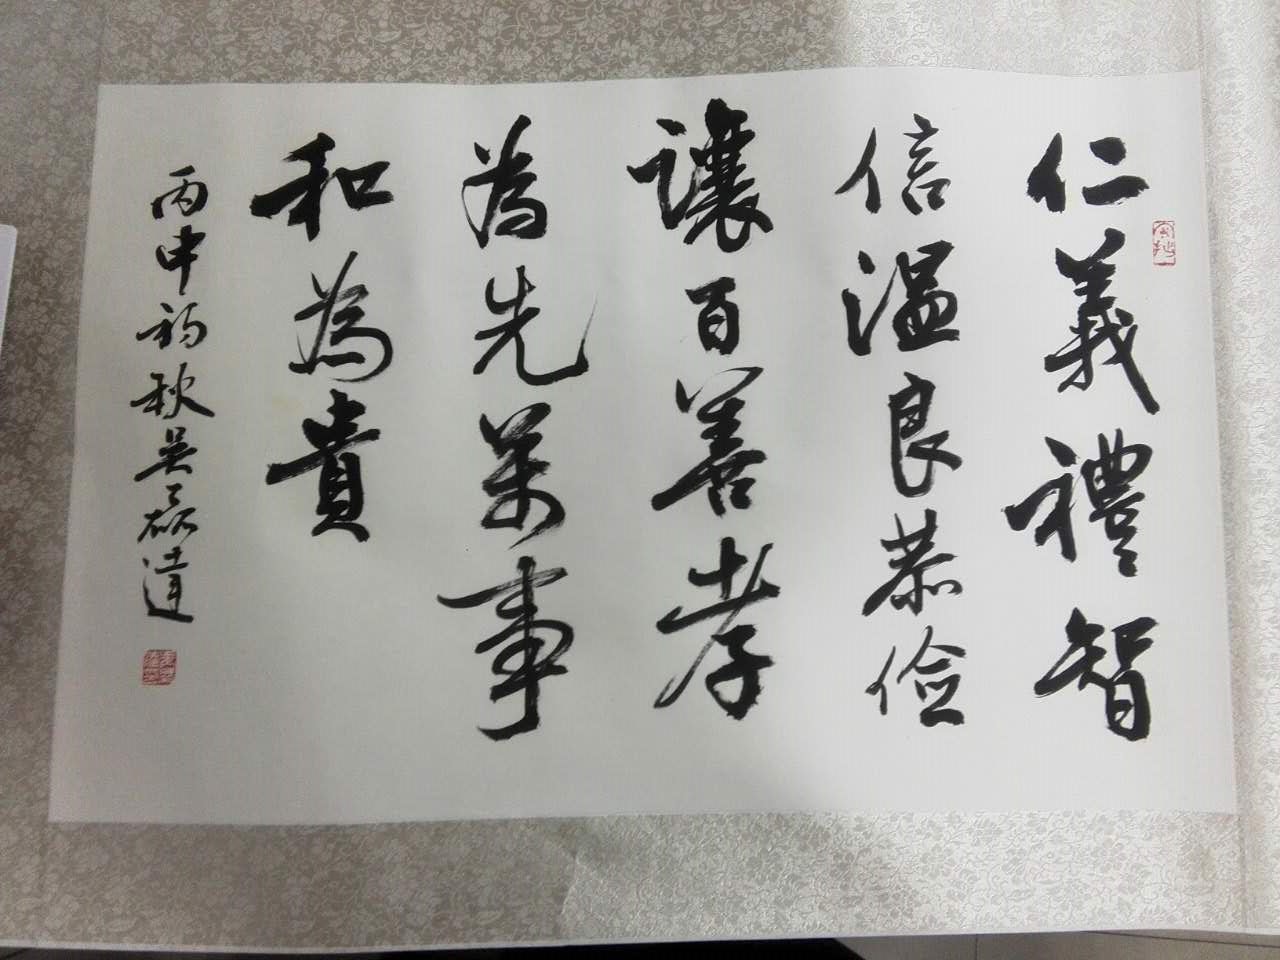 仁義禮智
信温良恭儉
讓百善孝
為先萬事
和為貴
丙申初秋吴磊達